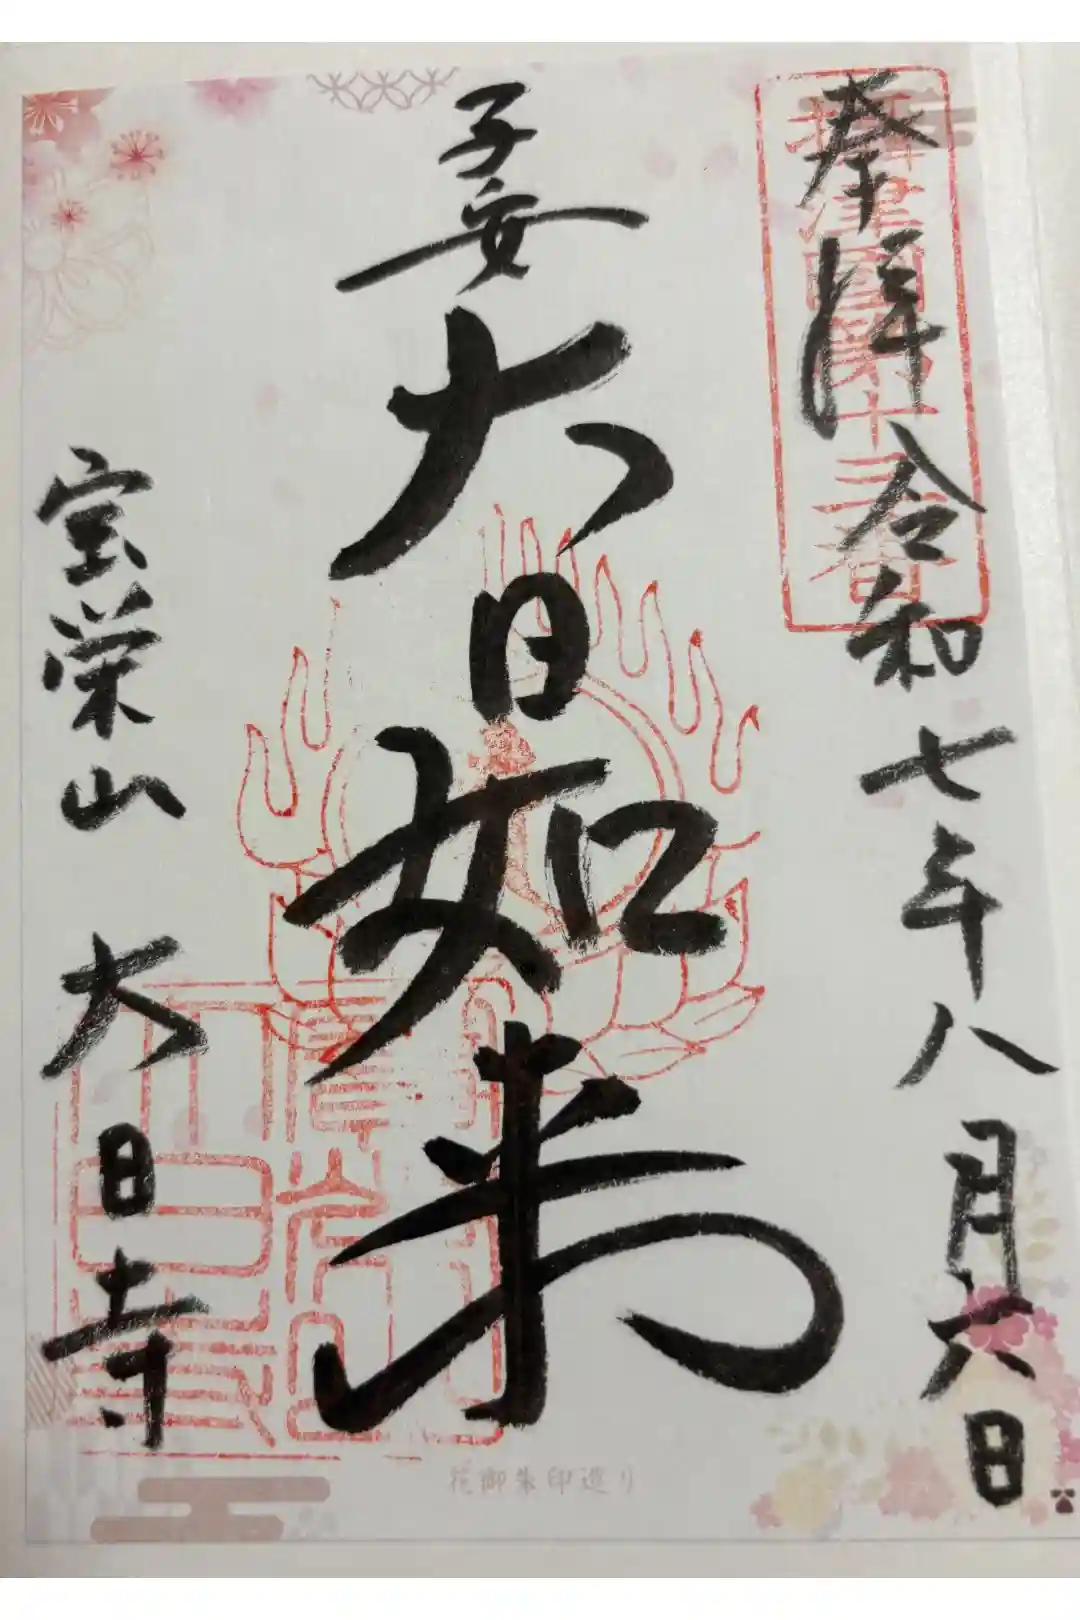 奉拝 令和七年八月六日
摂津國第十三番
子安
大日如来
宝栄山 大日寺
花御朱印巡り